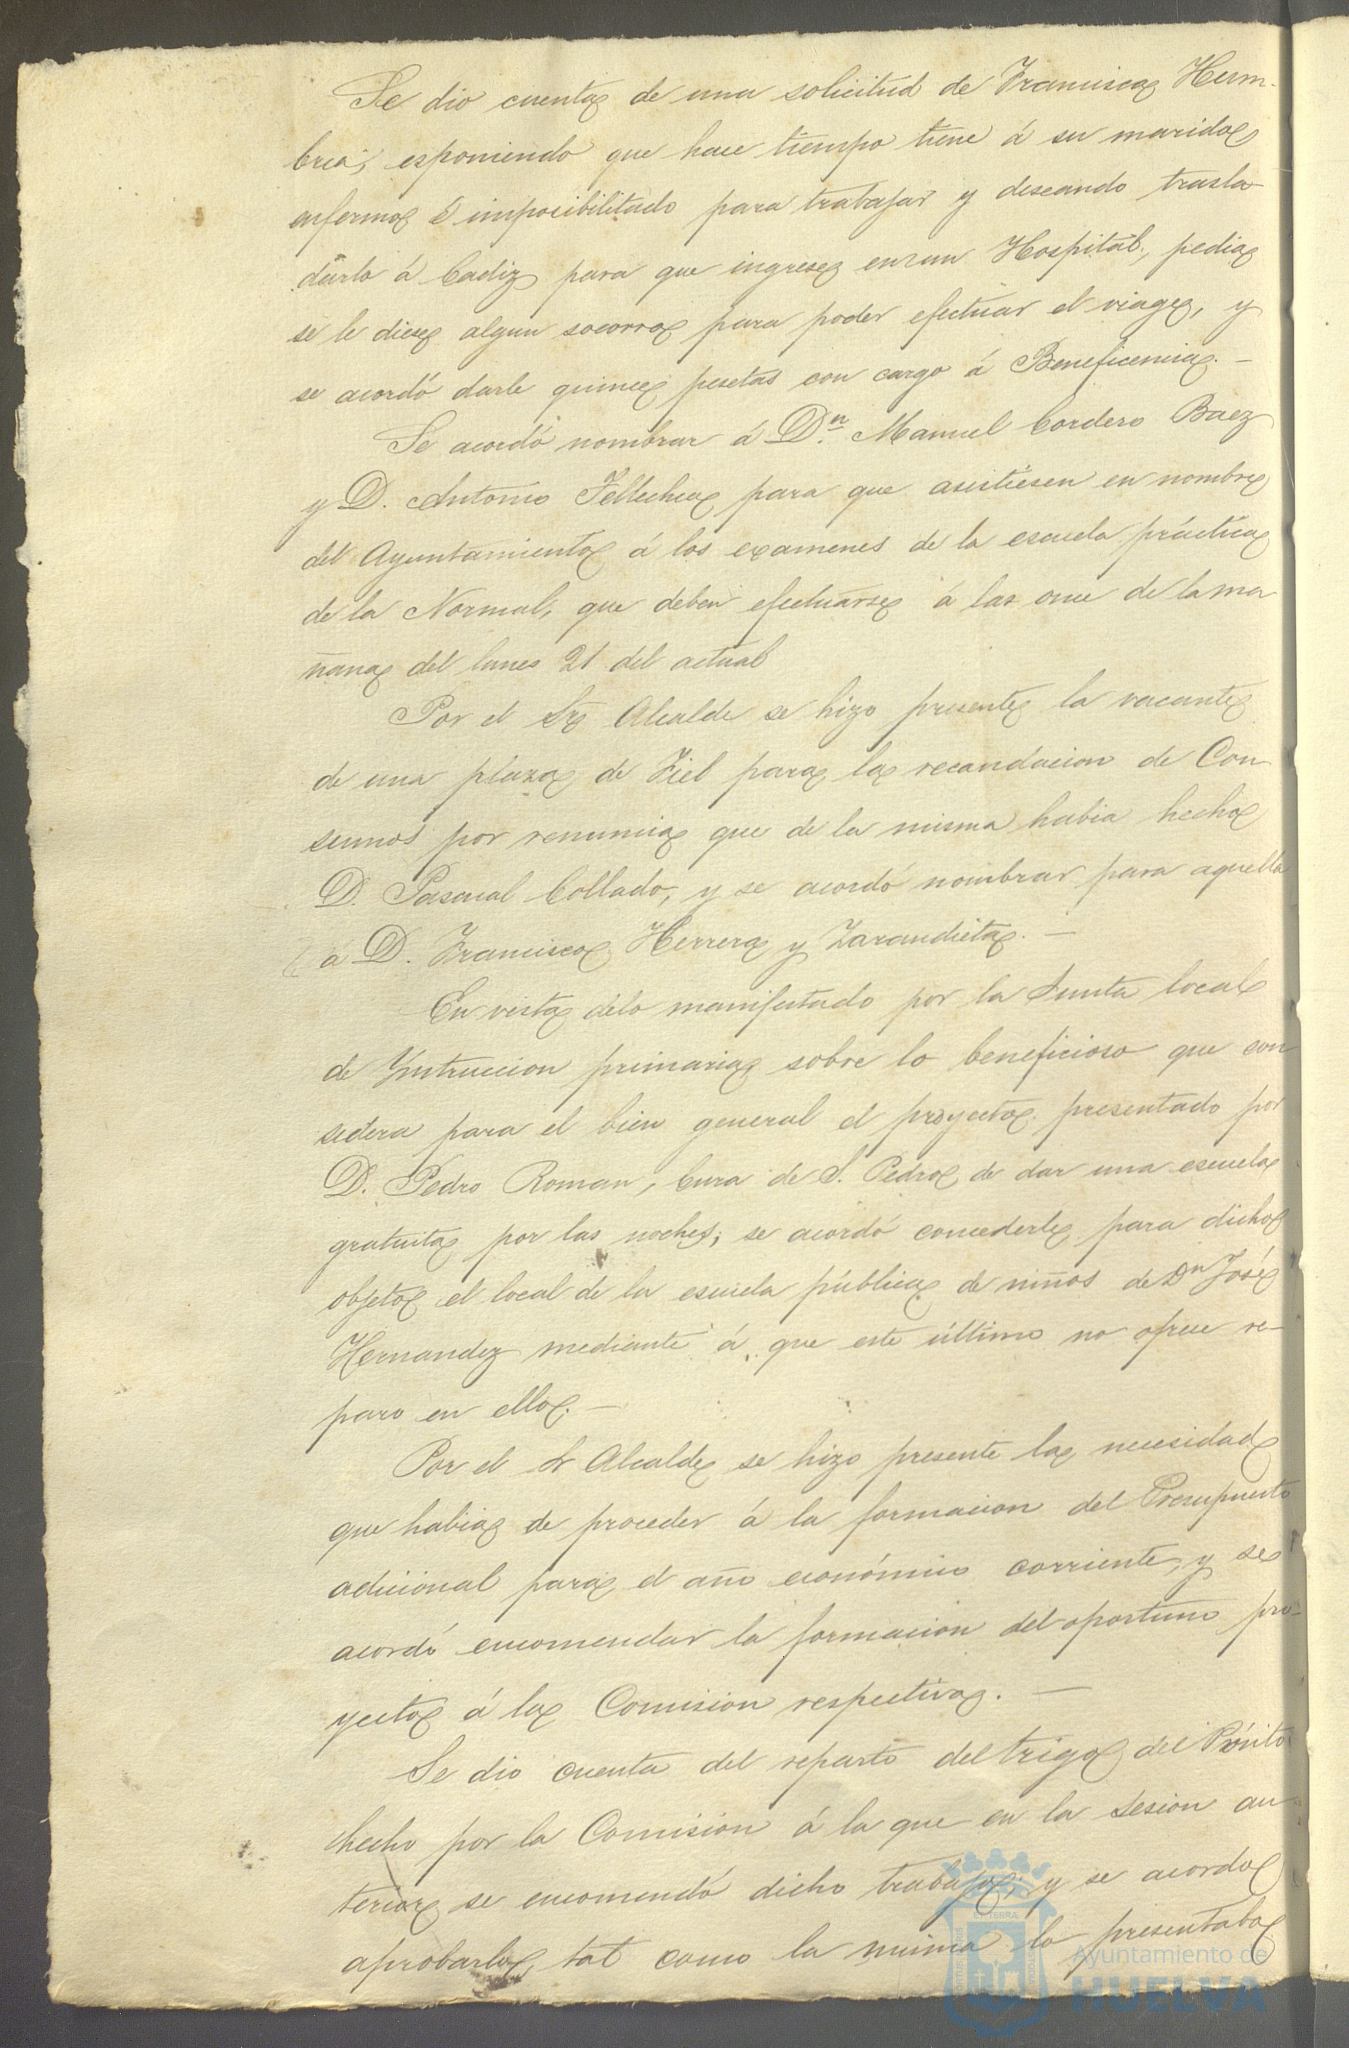 Se dio cuenta de una solicitud de Francisca Hem-
bria, esponiendo que hace tiempo tiene á su marido
enfermo é imposibilitado para trabajar y deseando trasla
darlo á Cadiz para que ingrese en un Hospital, pedia
se le diese algun socorro para poder efectuar el viage, y
se acordó darle quince pesetas con cargo á Beneficencia.—
Se acordó nombrar á Dn. Manuel Cordero Baez
y D. Antonio Tellechea para que asistiesen en nombre
del Ayuntamiento á los examenes de la escuela práctica
de la Normal, que deben efectuarse á las once de la ma
ñana del lunes 21 del actual
Por el Sr. Alcalde se hizo presente la vacante
de una plaza de Fiel para la recaudacion de Con
sumos por renuncia que de la misma habia hecho
D. Pascual Collado, y se acordó nombrar para aquella
á D. Francisco Herrera y Zarandieta.—
En vista delo manifestado por la Junta local
de Ynstruccion primaria sobre lo beneficioso que con
sidera para el bien general el proyecto presentado por
D. Pedro Roman, Cura de S. Pedro de dar una escuela
gratuita por las noches; se acordó concederle para dicho
objeto el local de la escuela pública de niños de Dn José
Hernandez mediante á que este último no ofrece re-
paro en ello.—
Por el Sr Alcalde se hizo presente la necesidad
que habia de proceder á la formacion del Presupuesto
adicional para el año económico corriente, y se
acordó encomendar la formacion del oportuno pro-
yecto á la Comision respectiva.—
Se dio cuenta del reparto del trigo del Pósito
hecho por la Comision á la que en la sesion an-
terior se encomendó dicho trabajo, y se acordó
aprobarlo, tal como la misma lo presentaba
Ayuntamiento de
HUELVA